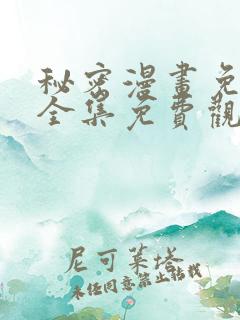 秘密漫畫免
全集免費觀
尼可萊塔
未经同意禁止转载